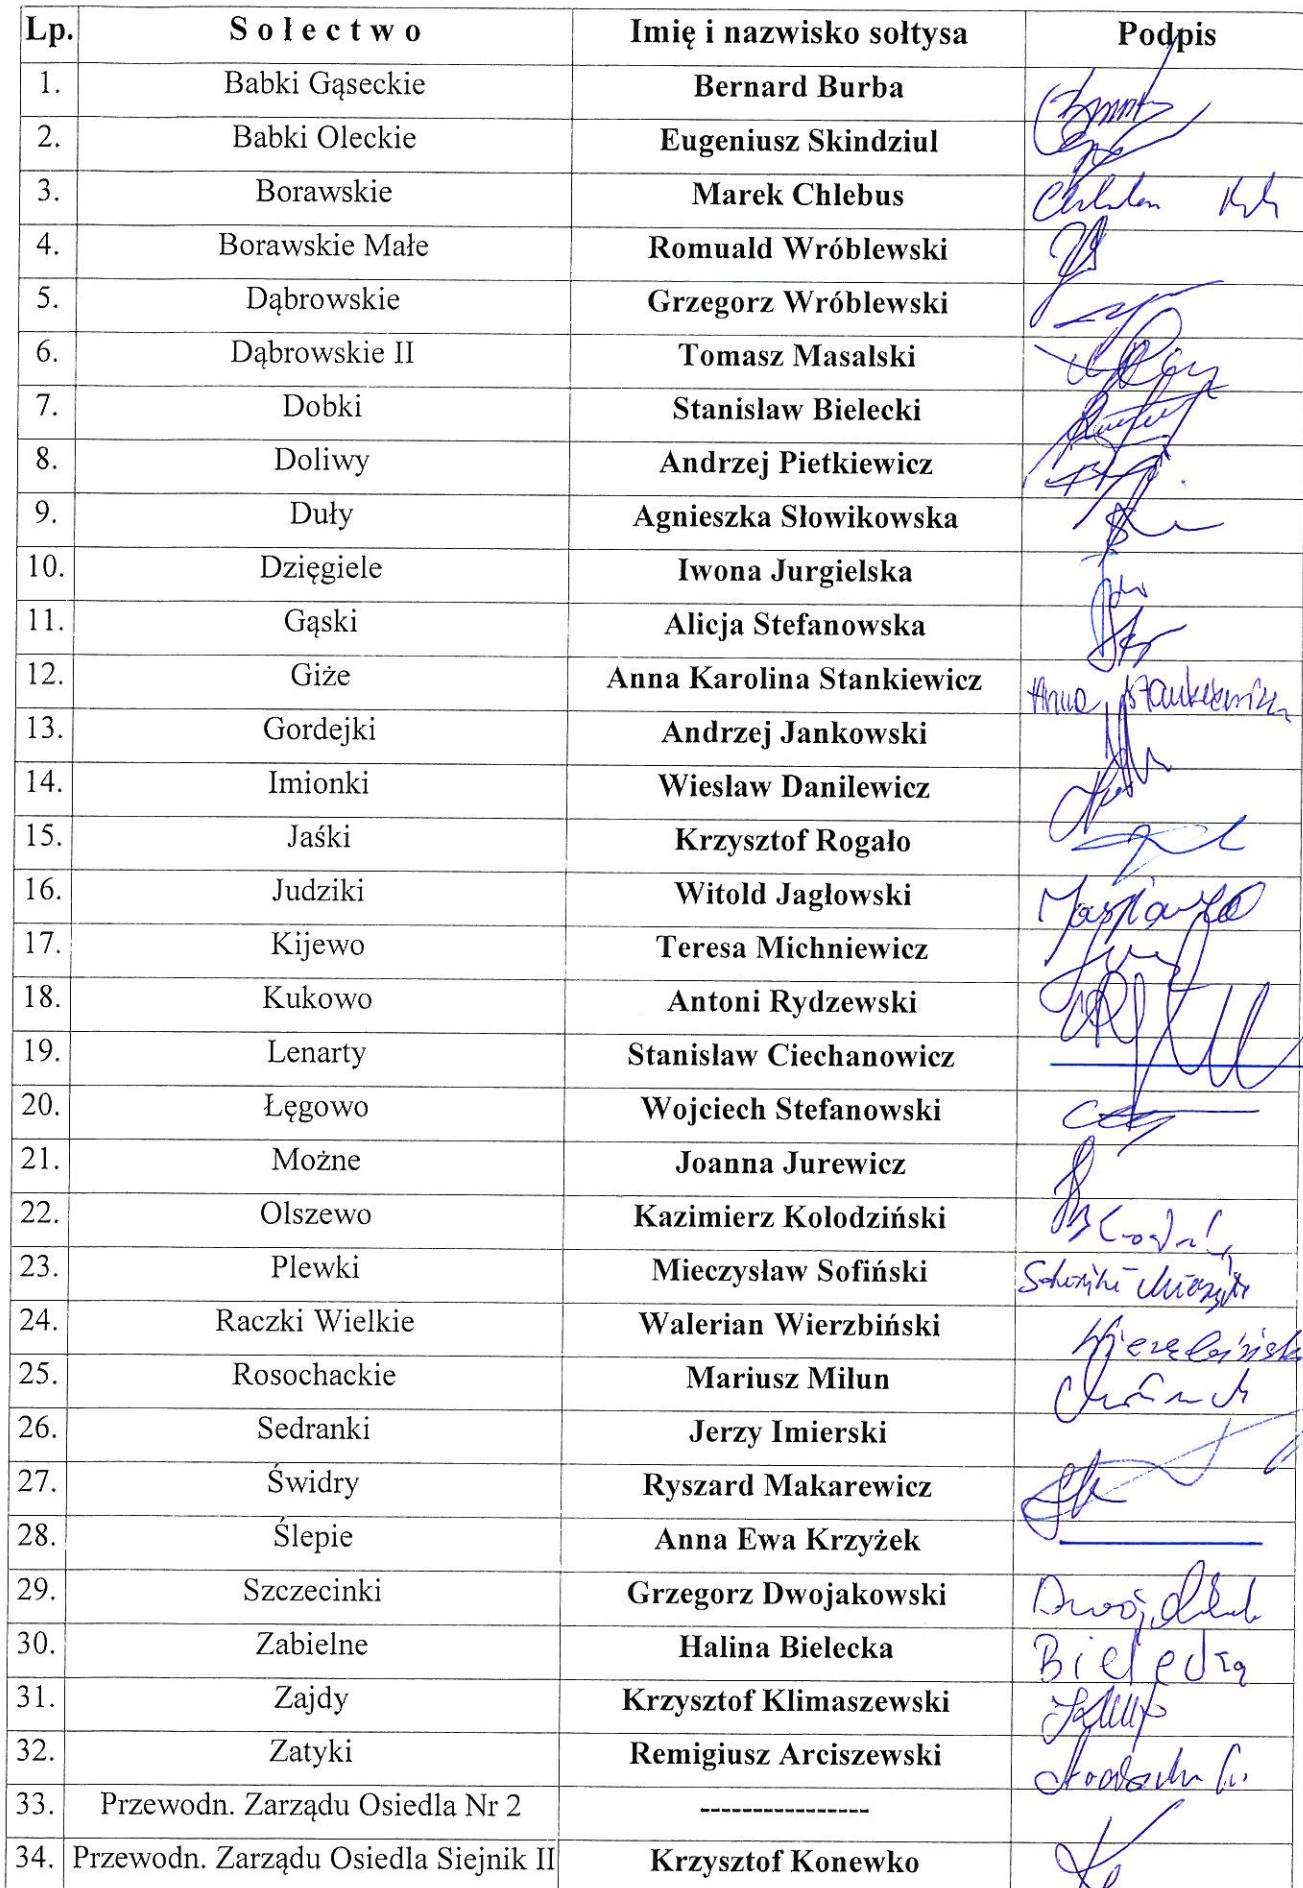 Lp. Sołectwo Imię i nazwisko sołtysa Podpis
1. Babki Gąseckie Bernard Burba
2. Babki Oleckie Eugeniusz Skindziul
3. Borawskie Marek Chlebus
4. Borawskie Małe Romuald Wróblewski
5. Dąbrowskie Grzegorz Wróblewski
6. Dąbrowskie II Tomasz Masalski
7. Dobki Stanisław Bielecki
8. Doliwy Andrzej Pietkiewicz
9. Duły Agnieszka Słowikowska
10. Dzięgiele Iwona Jurgielska
11. Gąski Alicja Stefanowska
12. Giże Anna Karolina Stankiewicz Anna Stankiewicz
13. Gordejki Andrzej Jankowski
14. Imionki Wiesław Danilewicz
15. Jaśki Krzysztof Rogało
16. Judziki Witold Jagłowski
17. Kijewo Teresa Michniewicz
18. Kukowo Antoni Rydzewski
19. Lenarty Stanisław Ciechanowicz
20. Łęgowo Wojciech Stefanowski
21. Możne Joanna Jurewicz
22. Olszewo Kazimierz Kolodziński
23. Plewki Mieczysław Sofiński
24. Raczki Wielkie Walerian Wierzbiński
25. Rosochackie Mariusz Milun
26. Sedranki Jerzy Imierski
27. Świdry Ryszard Makarewicz
28. Ślepie Anna Ewa Krzyżek
29. Szczecinki Grzegorz Dwojakowski
30. Zabielne Halina Bielecka
31. Zajdy Krzysztof Klimaszewski
32. Zatyki Remigiusz Arciszewski
33. Przewodn. Zarządu Osiedla Nr 2 ----------------
34. Przewodn. Zarządu Osiedla Siejnik II Krzysztof Konewko